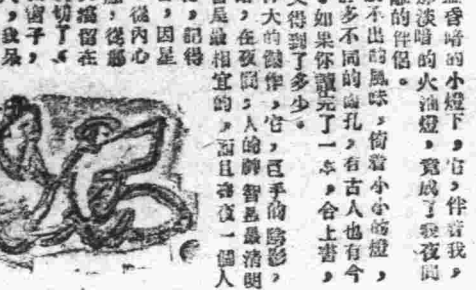 盞昏暗的小燈下，它，伴著我，
那淡暗的火油燈，竟成了我夜間
的伴侶。
不出的風味，倚着小小的燈，
許多不同的面孔，有古人也有今
。如果你讀完了一本，合上書，
又得到了多少。
大的傑作，它，巨手的陰影，
，在夜間，人的神智是最清明
是最相宜的，而且在夜一個人
，記得
，因是
從內心
，從那
切了。
留在
子，
，我呆